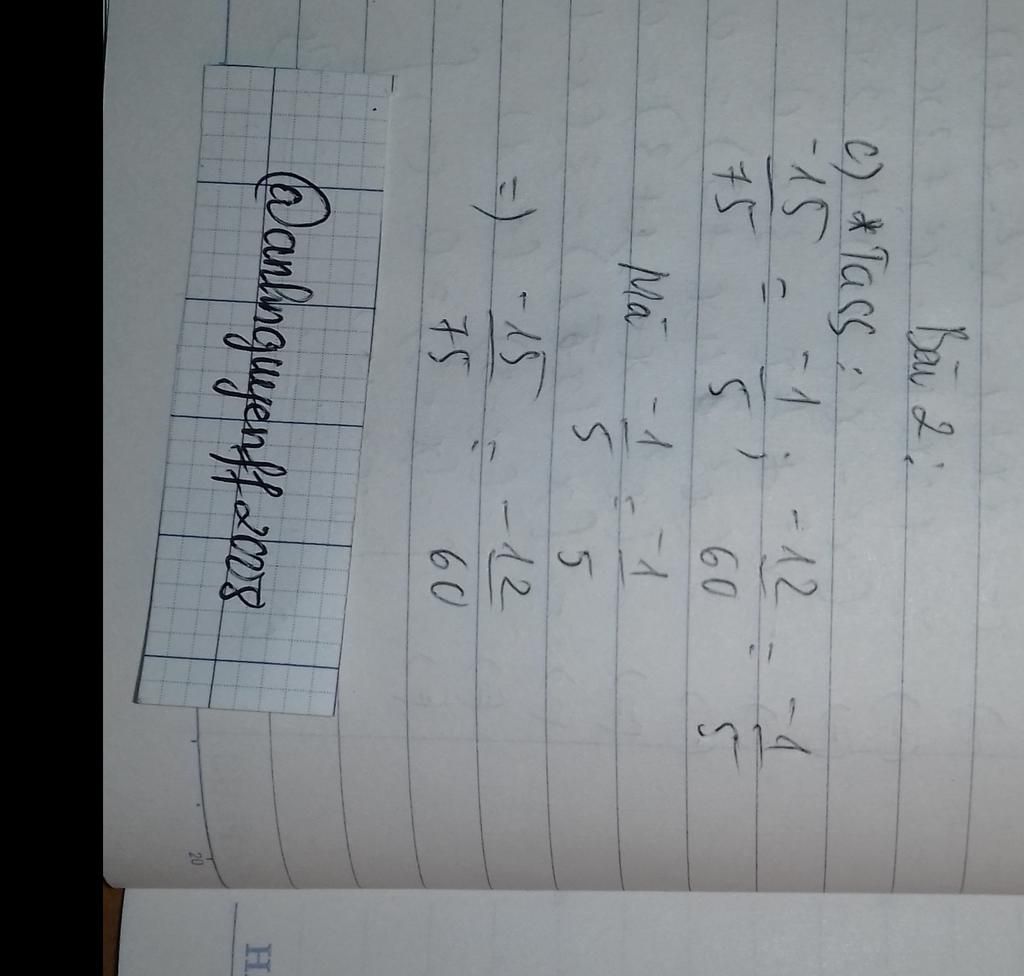 Bài 2:
c) * Ta ss:
-15/75 = -1/5; -12/60 = -1/5
Mà -1/5 = -1/5
=) -15/75 = -12/60
@anhnguyenff2008
20
H